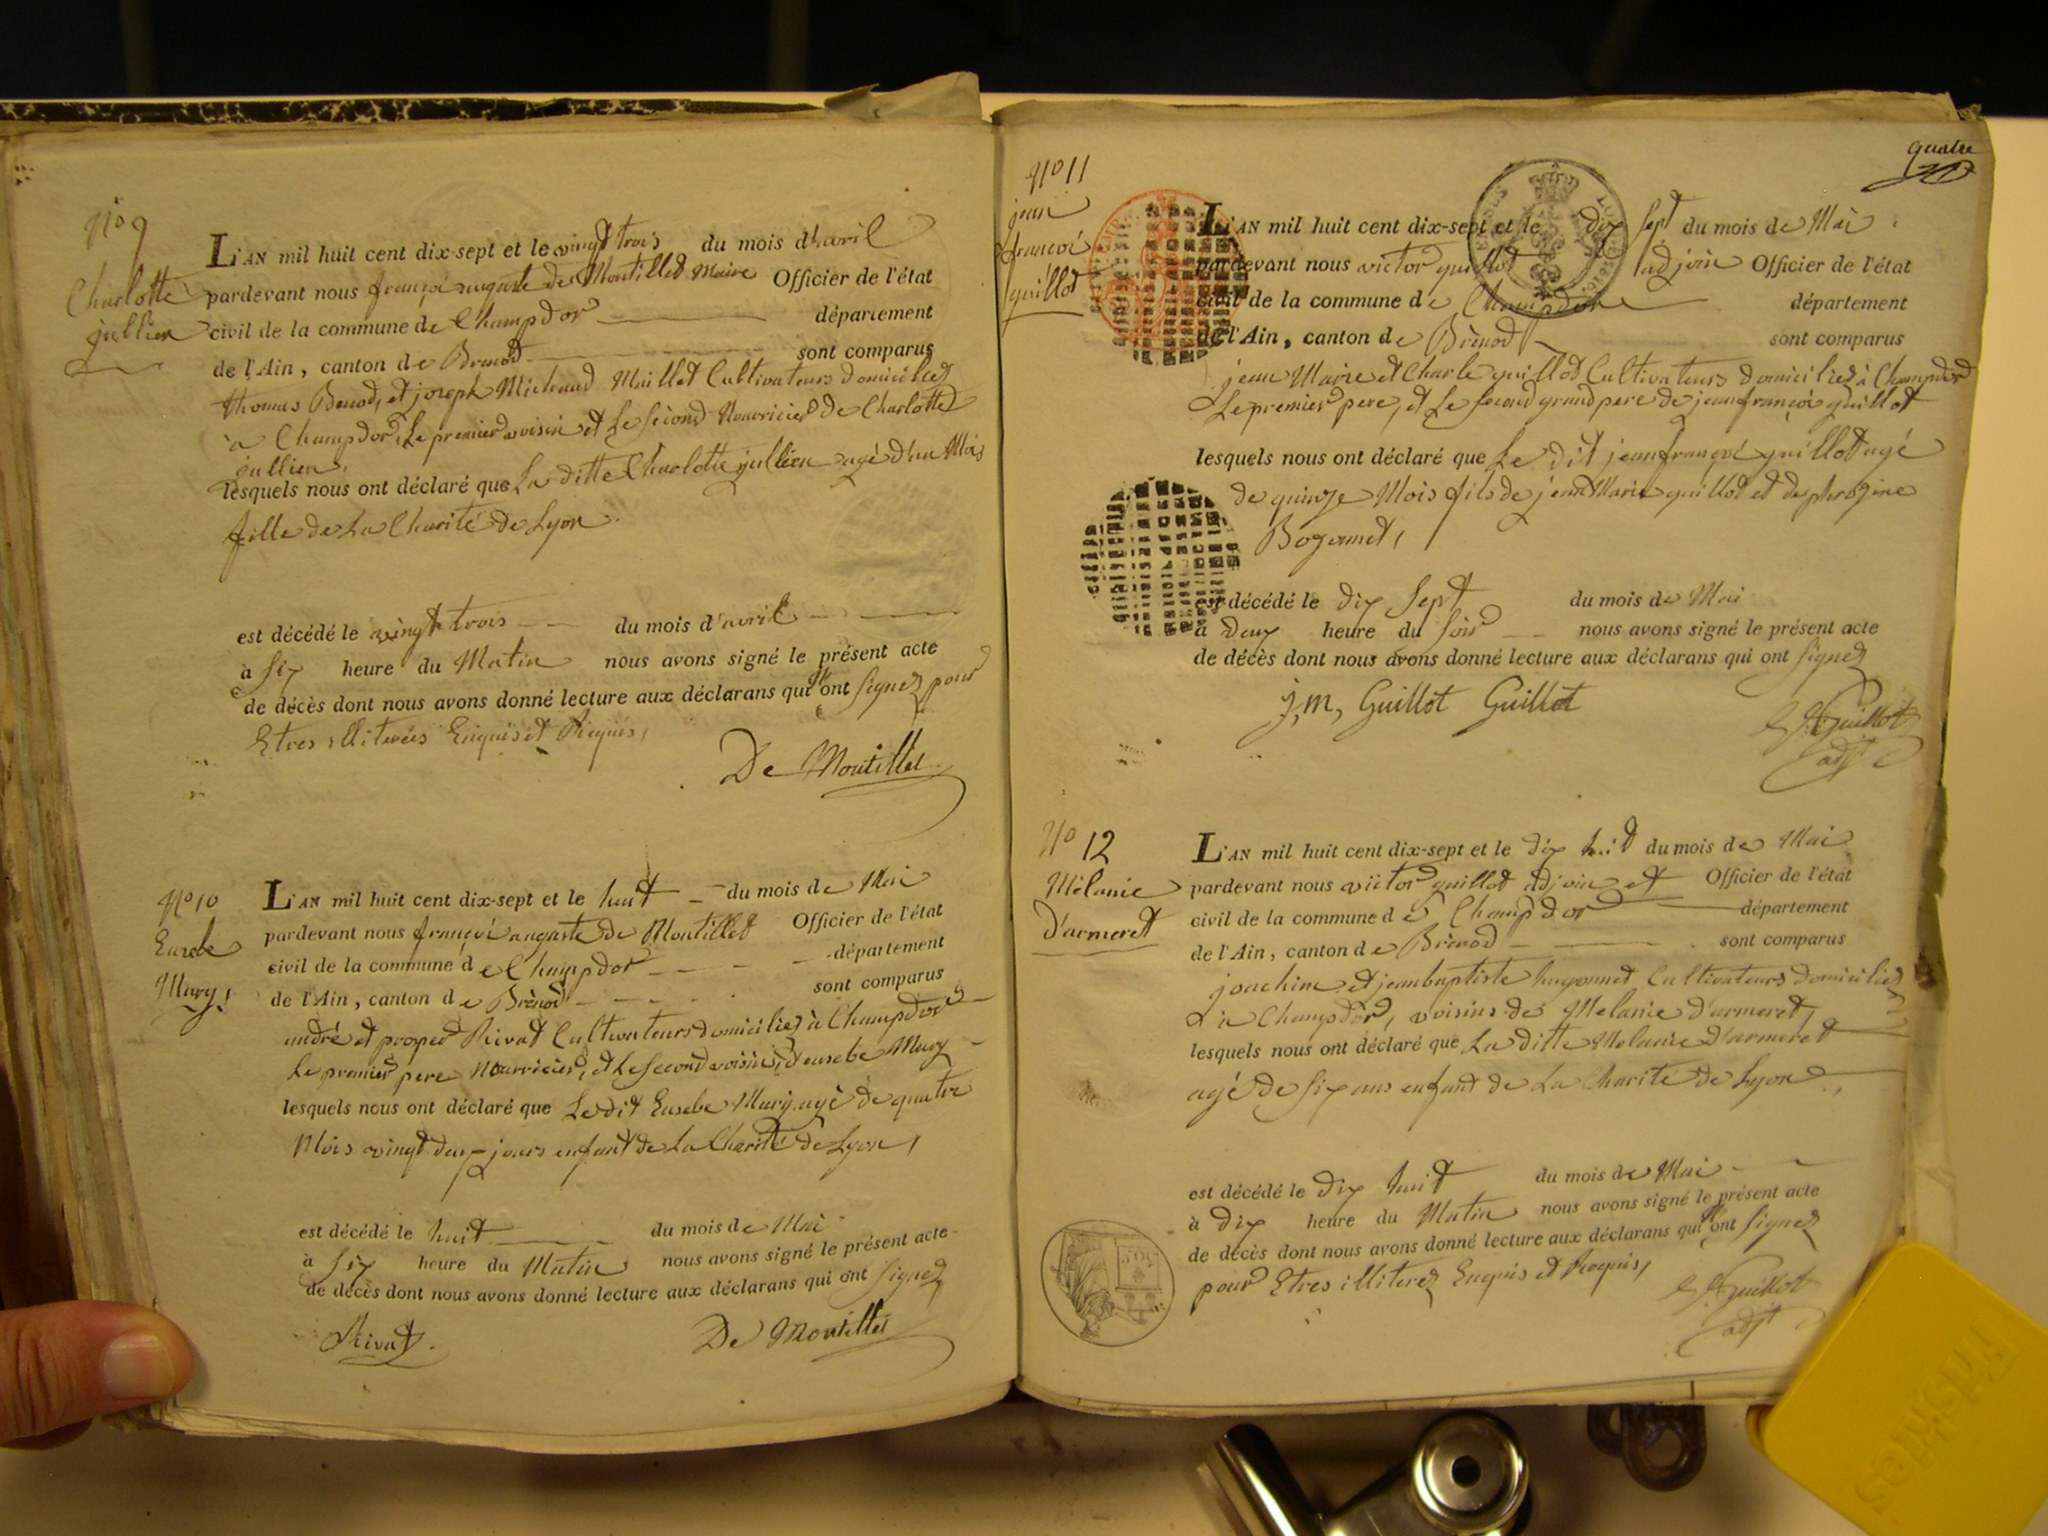 N.o 9
Charlotte
jullien
L'AN mil huit cent dix-sept et le vingt trois du mois d'havril
pardevant nous françoi auguste de Montillet Maire Officier de l'état
civil de la commune de Champdor département
de l'Ain, canton de Brenod sont comparus
thomas Benod, et joseph Michaud Maillet Cultivateurs domiciliez
a Champdor, Le premier voisin et Le second Nourricier de Charlotte
jullien,
lesquels nous ont déclaré que La ditte Charlotte jullien agé d'un Mois
fille de La Charité de Lyon.
est décédé le vingt trois du mois d'avril
à six heure du Matin nous avons signé le présent acte
de décès dont nous avons donné lecture aux déclarans qui n'ont signez pour
Etres illiterés Enquis et Requis,
De Montillet
N.o 10
Euzebe
Mury,
L'AN mil huit cent dix-sept et le huit du mois de Mai
pardevant nous françoi auguste de Montillet Officier de l'état
civil de la commune de Champdor département
de l'Ain, canton de Brenod sont comparus
andré et prosper Rivat Cultivateurs domiciliez à Champdor
Le premier pere Nourricier, et Le second voisin, d'eusebe Mury
lesquels nous ont déclaré que Le dit Eusebe Mury agé de quatre
Mois vingt deux jours enfant de La Charité de Lyon,
est décédé le huit du mois de Mai
à six heure du Matin nous avons signé le présent acte
de décès dont nous avons donné lecture aux déclarans qui ont signez
Rivat. De Montillet
quatre
N.o 11
jean
francoi
guillot
L'AN mil huit cent dix-sept et le dix sept du mois de Mai
pardevant nous victor guillot adjoin Officier de l'état
civil de la commune de Champdor département
de l'Ain, canton de Brénod sont comparus
jean Marie et Charle guillot Cultivateurs domiciliez à Champdor
Le premier pere, et Le second grand pere de jean françoi guillot
lesquels nous ont déclaré que Le dit jean françoi guillot agé
de quinze Mois fils de jean Marie guillot et de pherozine
Bogernet,
est décédé le dix sept du mois de Mai
à deux heure du soir nous avons signé le présent acte
de décès dont nous avons donné lecture aux déclarans qui ont signez
j, m, Guillot Guillot
Guillot
adjt
N.o 12
Mélanie
D'armeret
L'AN mil huit cent dix-sept et le dix huit du mois de Mai
pardevant nous victor guillot adjoin et Officier de l'état
civil de la commune de Champdor département
de l'Ain, canton de Brénod sont comparus
joachim et jean baptiste hugonnet Cultivateurs domiciliez
à Champdor, voisins de Melanie d'armeret,
lesquels nous ont déclaré que La ditte Melanie D'armeret
agé de six ans enfant de La Charité de Lyon,
est décédé le dix huit du mois de Mai
à dix heure du Matin nous avons signé le présent acte
de décès dont nous avons donné lecture aux déclarans qui n'ont signez
pour Etres illiterez Enquis et Requis,
Guillot
adjt
Fiskars